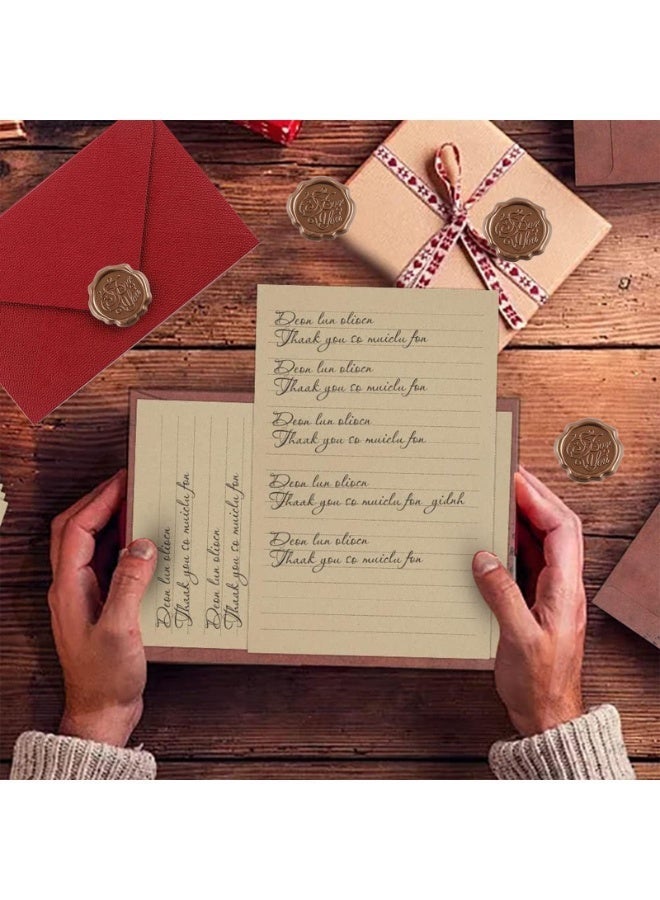 I Love
You
I Love
You
I Love
You
I Love
You
Deon lun oliocn
Thaak you so muiclu fon
Deon lun oliocn
Thaak you so muiclu fon
Deon lun oliocn
Thaak you so muiclu fon
Deon lun oliocn
Thaak you so muiclu fon gidnh
Deon lun oliocn
Thaak you so muiclu fon
Deon lun oliocn
Thaak you so muiclu fon
Deon lun oliocn
Thaak you so muiclu fon